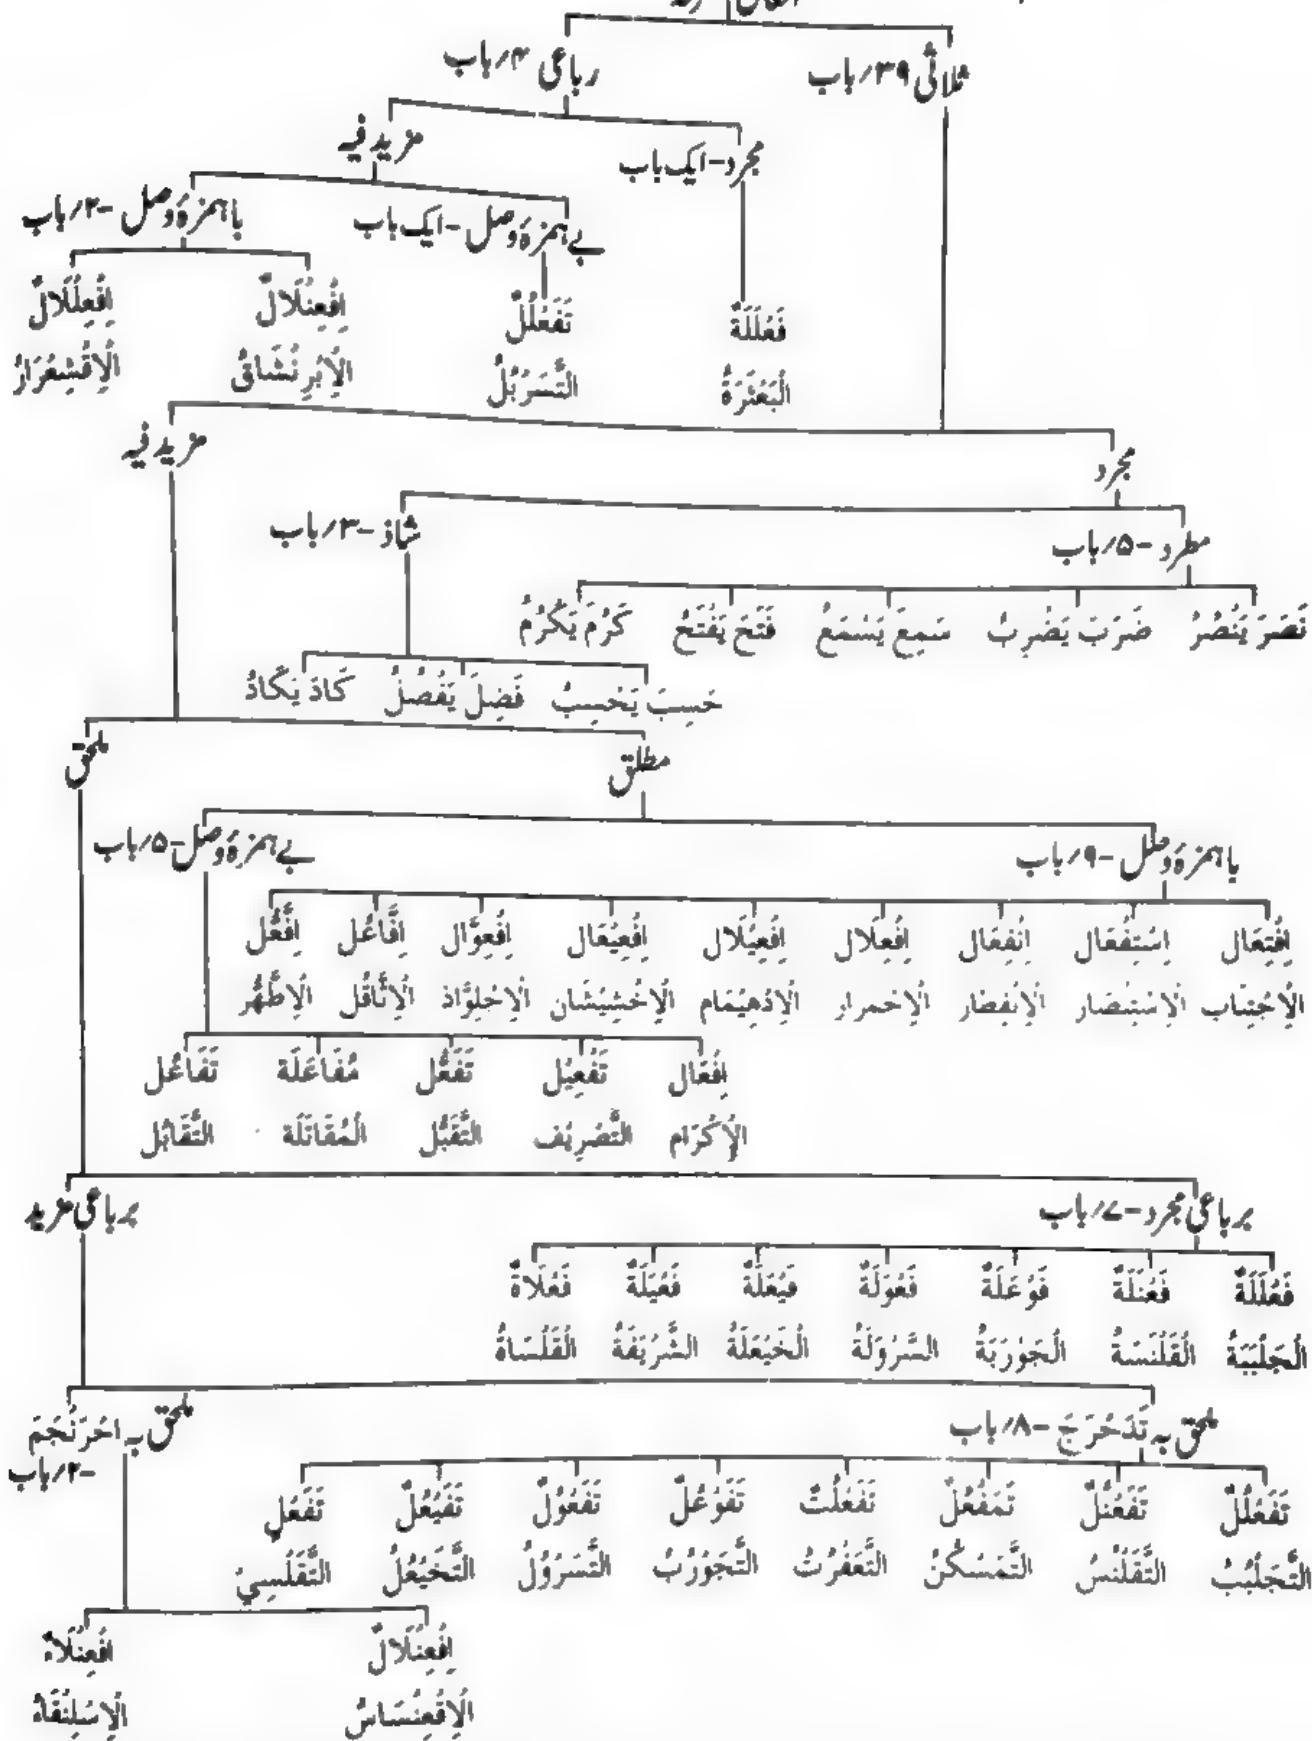 ثلاثی ۳۹/باب رباعی ۴/باب
مجرد-ایک باب مزید فیہ
بے ہمزۂ وصل-ایک باب باہمزۂ وصل-۲/باب
فَعْلَلَةٌ تَفَعْلُلٌ اِفْعِنْلَالٌ اِفْعِلْلَالٌ
اَلْبَعْثَرَةُ اَلتَّسَرْبُلُ اَلْاِبْرِنْشَاقُ اَلْاِقْشِعْرَارُ
مجرد مزید فیہ
مطرد-۵/باب شاذ-۳/باب
نَصَرَ يَنْصُرُ ضَرَبَ يَضْرِبُ سَمِعَ يَسْمَعُ فَتَحَ يَفْتَحُ كَرُمَ يَكْرُمُ
حَسِبَ يَحْسِبُ فَضِلَ يَفْضُلُ كَادَ يَكَادُ
مطلق ملحق
باہمزۂ وصل-۹/باب بے ہمزۂ وصل-۵/باب
اِفْتِعَال اِسْتِفْعَال اِنْفِعَال اِفْعِلَال اِفْعِيْلَال اِفْعِيْعَال اِفْعِوَّال اِفَّاعُل اِفَّعُّل
اَلْاِجْتِنَاب اَلْاِسْتِنْصَار اَلْاِنْفِطَار اَلْاِحْمِرَار اَلْاِدْهِيْمَام اَلْاِخْشِيْشَان اَلْاِجْلِوَّاذ اَلْاِثَّاقُل اَلْاِطَّهُّر
اِفْعَال تَفْعِيْل تَفَعُّل مُفَاعَلَة تَفَاعُل
اَلْاِكْرَام اَلتَّصْرِيْف اَلتَّقَبُّل اَلْمُقَاتَلَة اَلتَّقَابُل
برباعی مجرد-۷/باب برباعی مزید
فَعْلَلَةٌ فَعْنَلَةٌ فَوْعَلَةٌ فَعْوَلَةٌ فَيْعَلَةٌ فَعْيَلَةٌ فَعْلَاةٌ
اَلْجَلْبَبَةُ اَلْقَلْنَسَةُ اَلْجَوْرَبَةُ اَلسَّرْوَلَةُ اَلْخَيْعَلَةُ اَلشَّرْيَفَةُ اَلْقَلْسَاةُ
ملحق بہ تَدَحْرَجَ-۸/باب ملحق بہ اِحْرَنْجَمَ
-۲/باب
تَفَعْلُلٌ تَفَعْنُلٌ تَمَفْعُلٌ تَفَعْلُتٌ تَفَوْعُلٌ تَفَعْوُلٌ تَفَيْعُلٌ تَفَعْلٍ
اَلتَّجَلْبُبُ اَلتَّقَلْنُسُ اَلتَّمَسْكُنُ اَلتَّعَفْرُتُ اَلتَّجَوْرُبُ اَلتَّسَرْوُلُ اَلتَّخَيْعُلُ اَلتَّقَلْسِيْ
اِفْعِنْلَالٌ اِفْعِنْلَاءٌ
اَلْاِقْعِنْسَاسُ اَلْاِسْلِنْقَاءُ